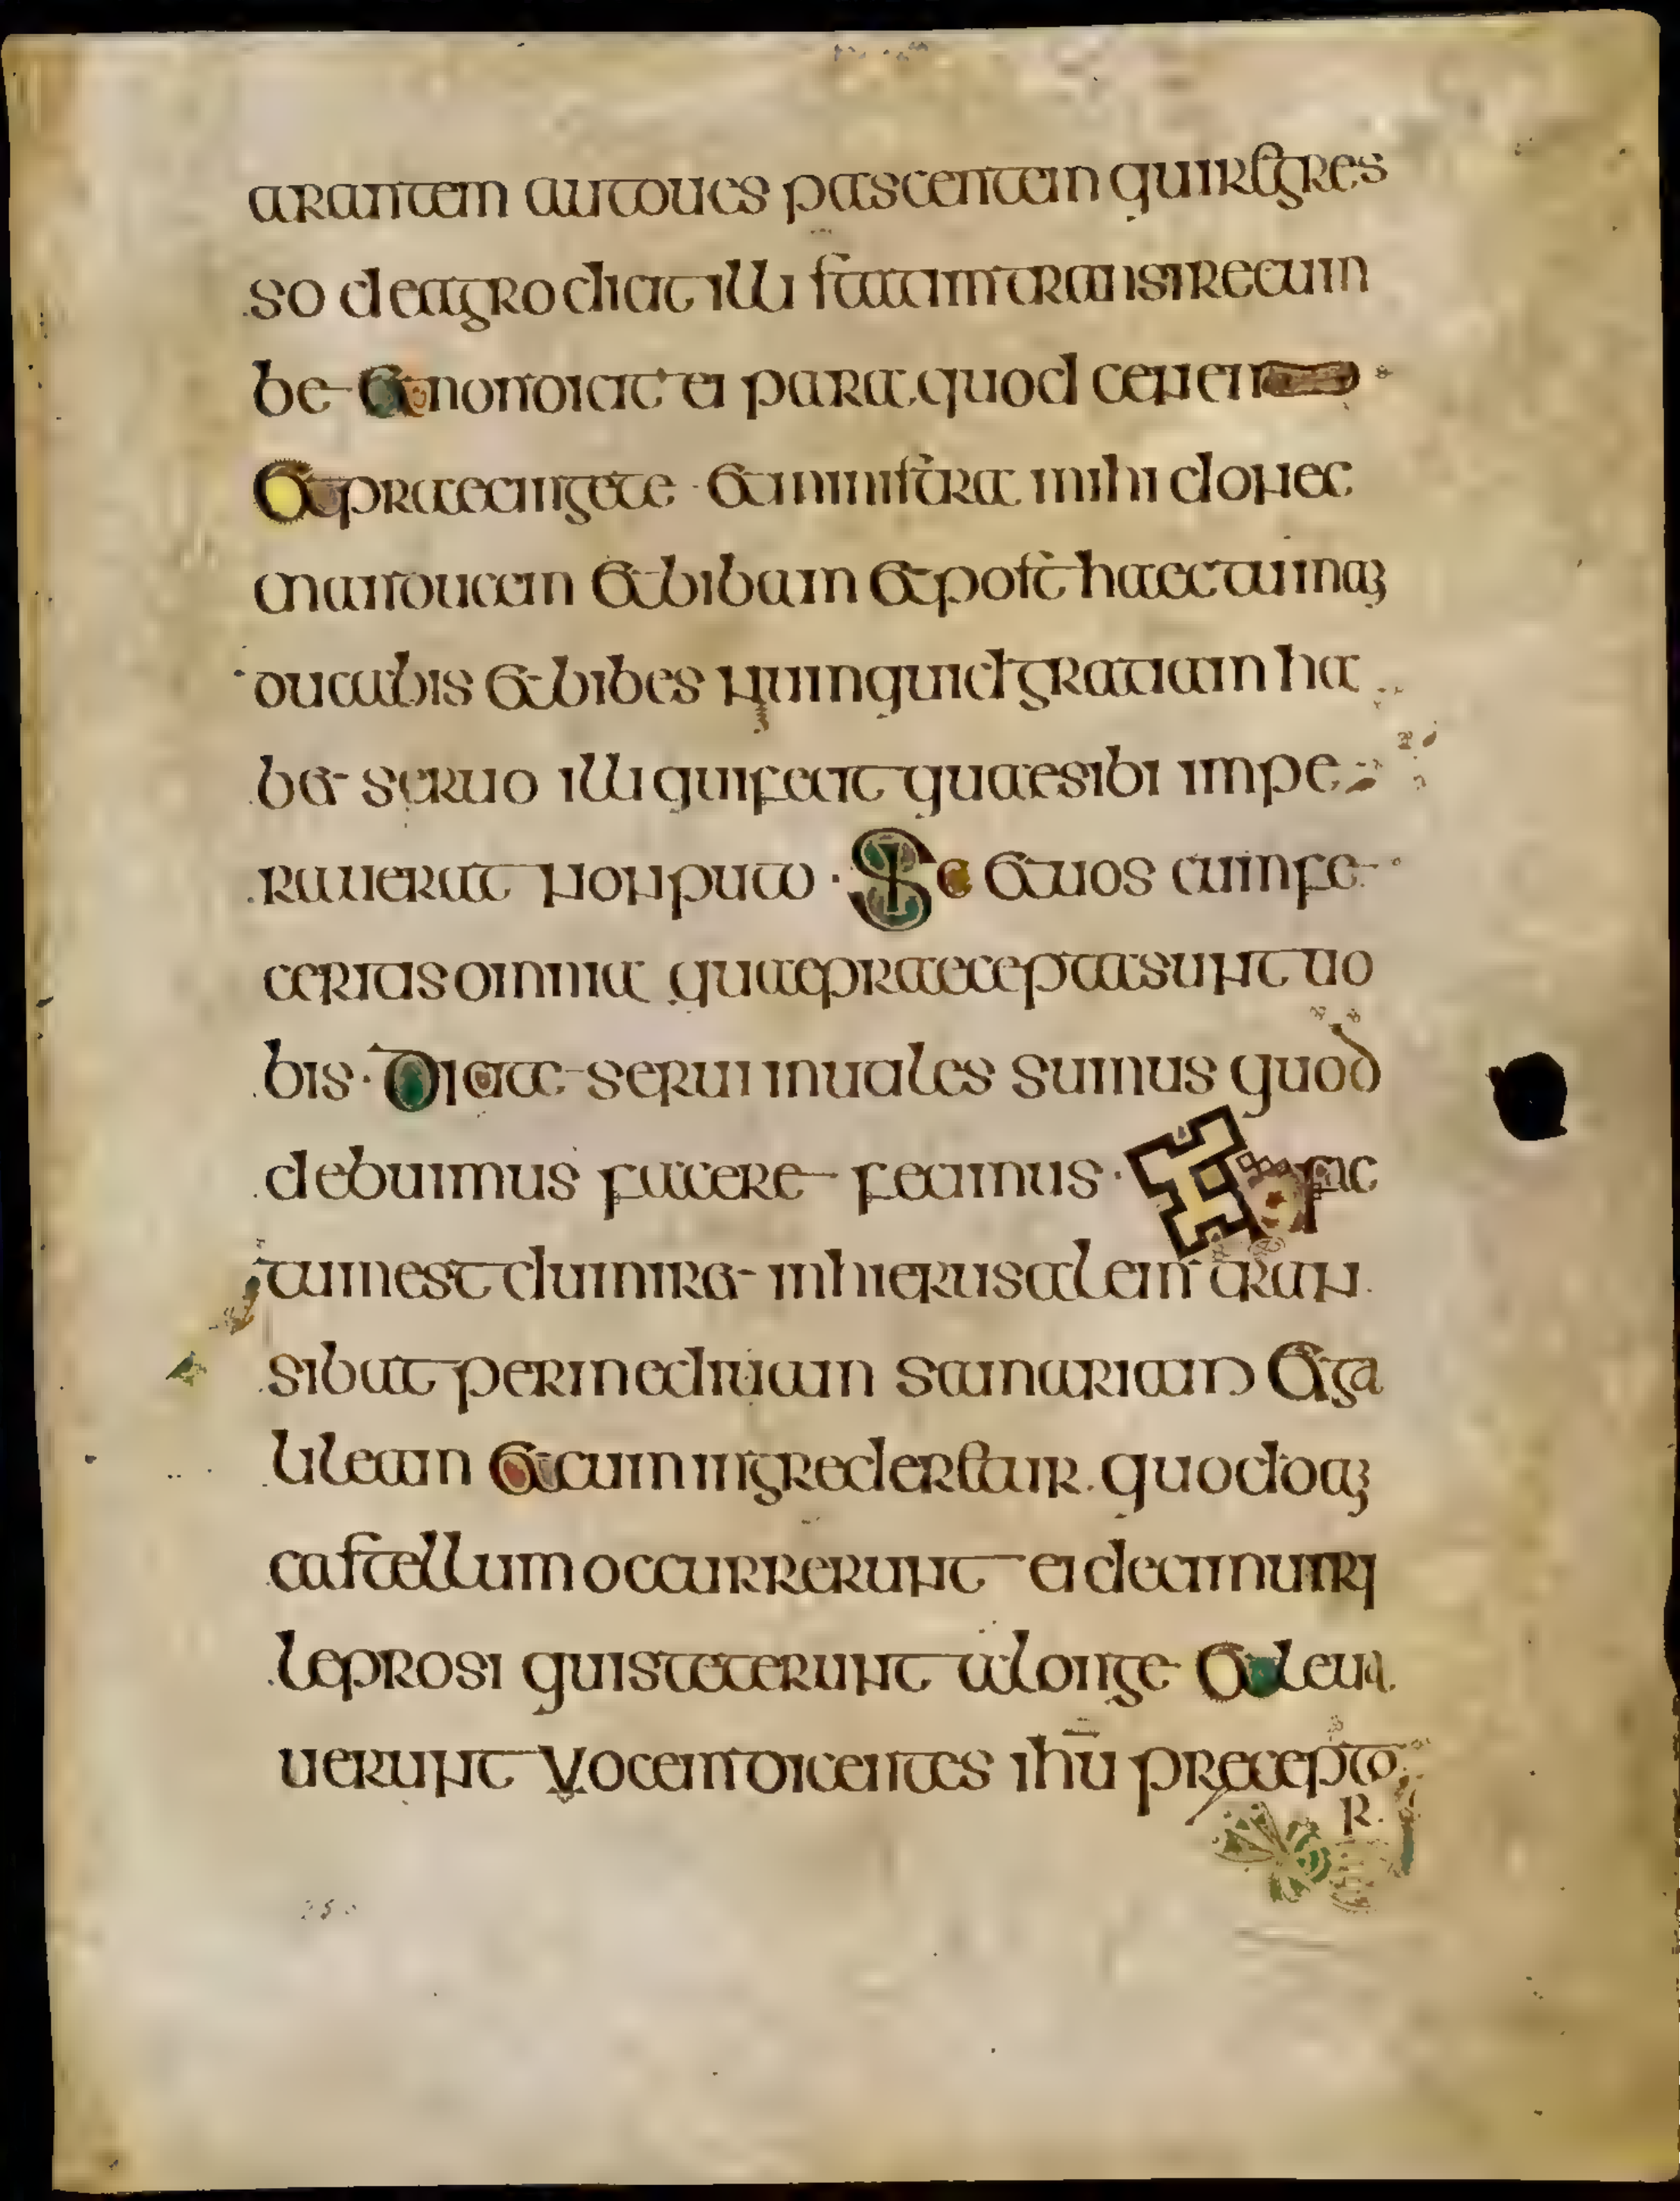 arantem aut oues pascentem qui regres
so de agro dicat illi statim transi recum
be et non dicat ei para quod cenem
et praecinge te et ministra mihi donec
manducem et bibam et post haec tu man
ducabis et bibes numquid gratiam ha
bet seruo illi qui fecit quae sibi impe
rauerat non puto · Sic et uos cum fe
ceritis omnia quae praecepta sunt uo
bis · Dicite serui inutiles sumus quod
debuimus facere fecimus · Et fac
tum est dum iret in hierusalem tran
sibat per mediam samariam et ga
lileam et cum ingrederetur quoddam
castellum occurrerunt ei decim uiri
leprosi qui steterunt a longe et leua
uerunt vocem dicentes ihū precepto
r